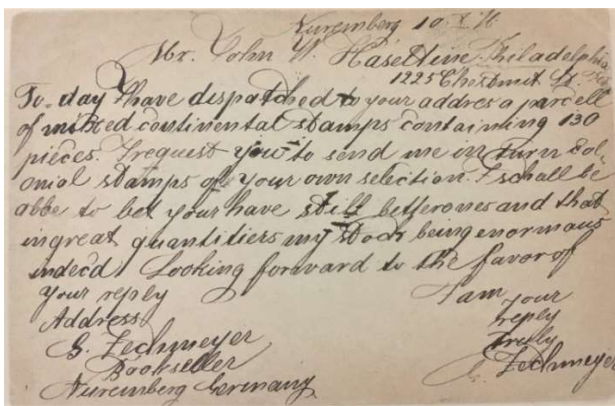 Nuremberg 10 X 76
Mr. John W. Haseltine Philadelphia
1225 Chestnut St.
To-day I have dispatched to your address a parcell
of mixed continental stamps containing 130
pieces. I request you to send me in turn Col-
onial stamps of your own selection. I schall be
abbe to let your have still betterones and that
ingreat quantitiers my stock being enormous
indeed. Looking forward to the favor of
your reply I am your
Address reply
G. Zechmeyer truly
Bookseller G. Zechmeyer
Nuremberg Germany